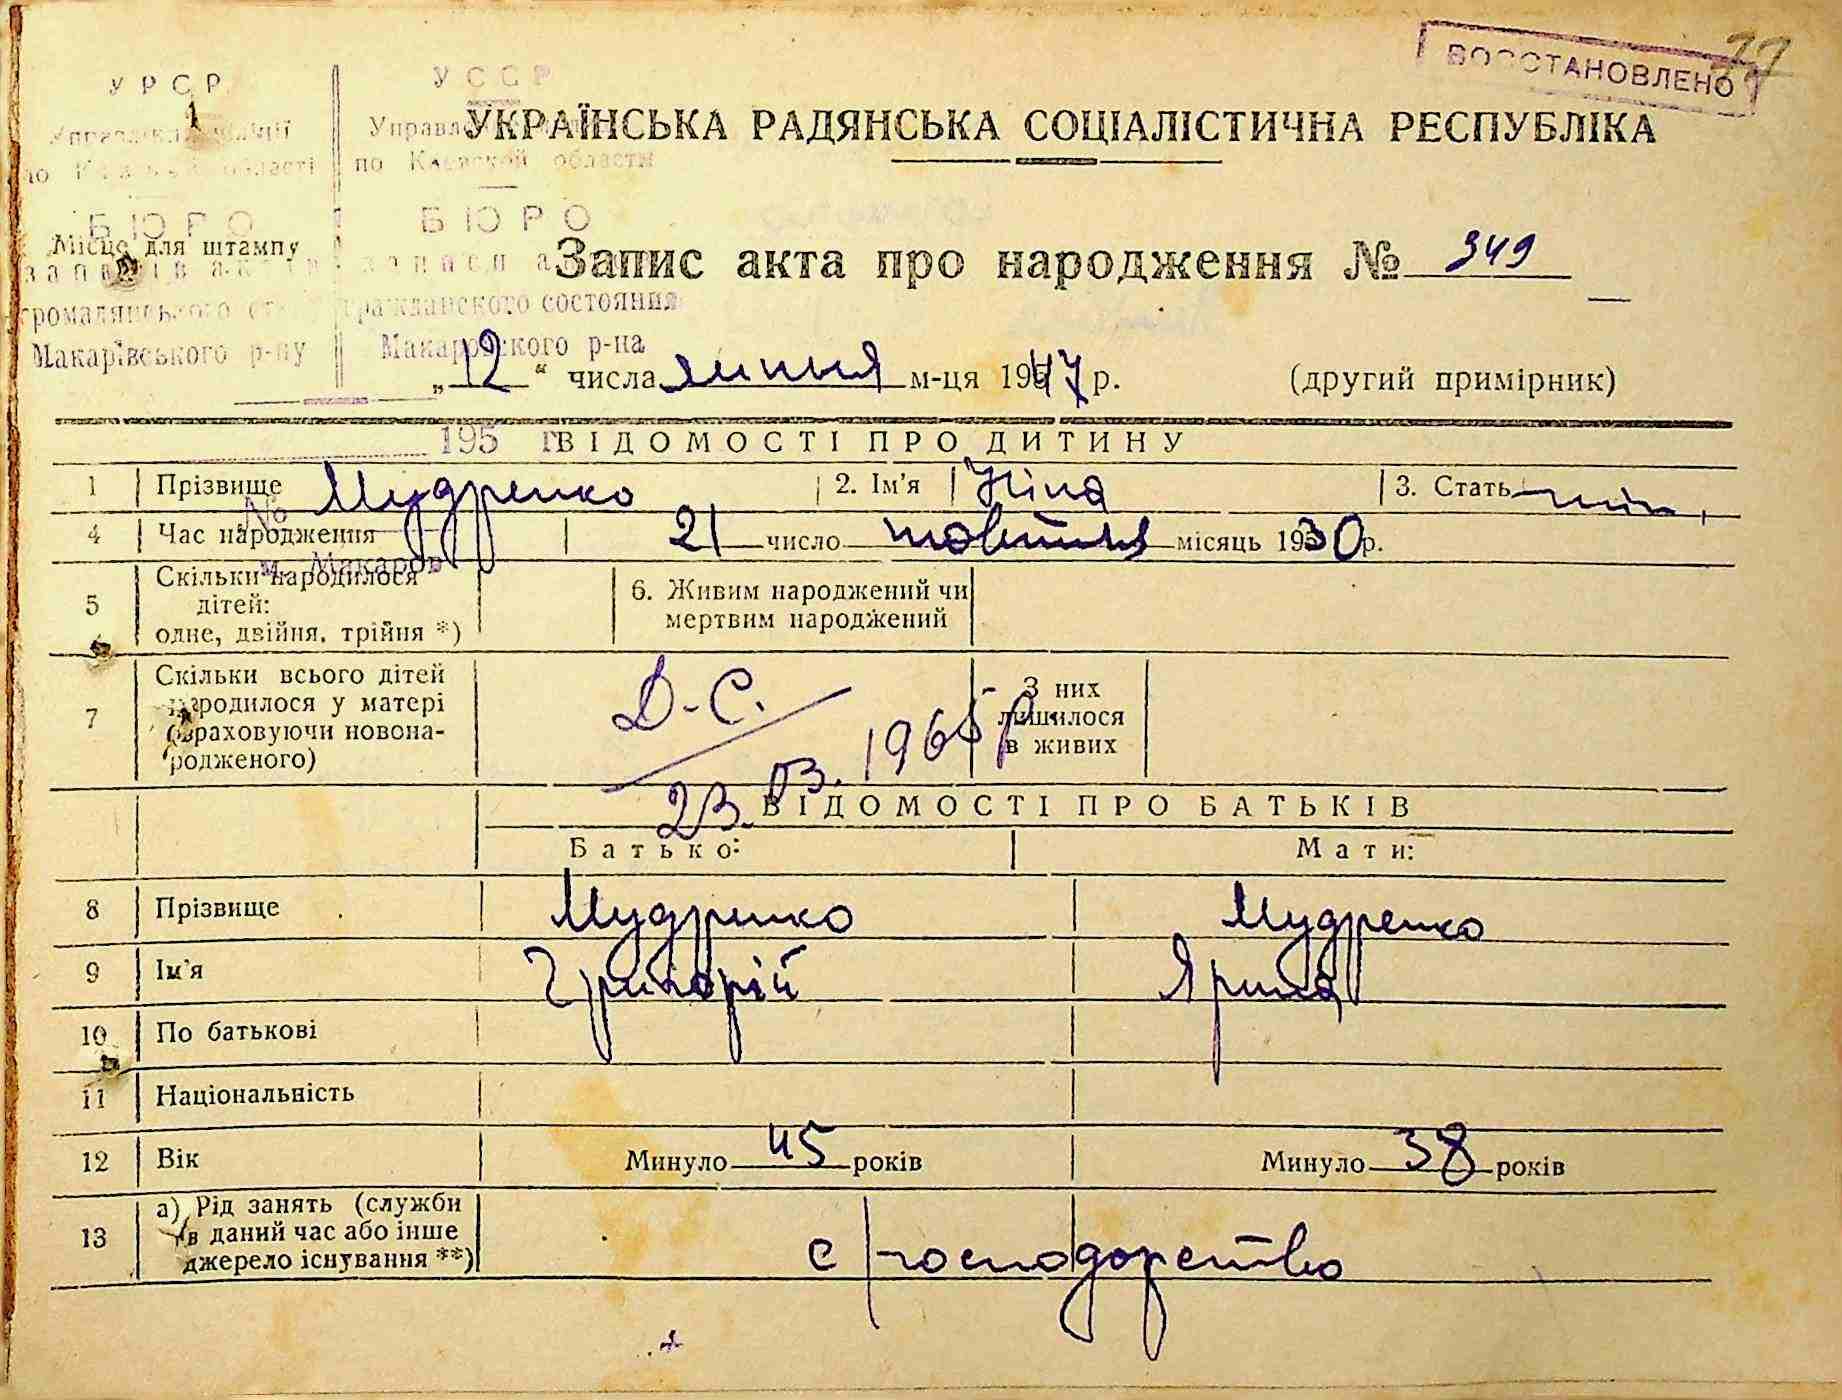 ВОССТАНОВЛЕНО
77
УРСР УССР
по Киевской области
БЮРО БЮРО
гражданского состояния
Макарівського р-ну Макаровского р-на
195
№
м. Макаров
УКРАЇНСЬКА РАДЯНСЬКА СОЦІАЛІСТИЧНА РЕСПУБЛІКА
Місце для штампу
Запис акта про народження № 349
„12“ числа липня м-ця 1947 р. (другий примірник)
ВІДОМОСТІ ПРО ДИТИНУ
1 Прізвище Мудренко 2. Ім'я Ніна 3. Стать жін.
4 Час народження 21 число жовтня місяць 1930 р.
5 Скільки народилося
дітей:
одне, двійня, трійня *)
6. Живим народжений чи
мертвим народжений
7 Скільки всього дітей
народилося у матері
(враховуючи новона-
родженого)
Д-С.
23.03.1965 р.
З них
лишилося
в живих
ВІДОМОСТІ ПРО БАТЬКІВ
Батько: Мати:
8 Прізвище Мудренко Мудренко
9 Ім'я Григорій Ярина
10 По батькові
11 Національність
12 Вік Минуло 45 років Минуло 38 років
13 а) Рід занять (служби
в даний час або інше
джерело існування **)
с/господарство